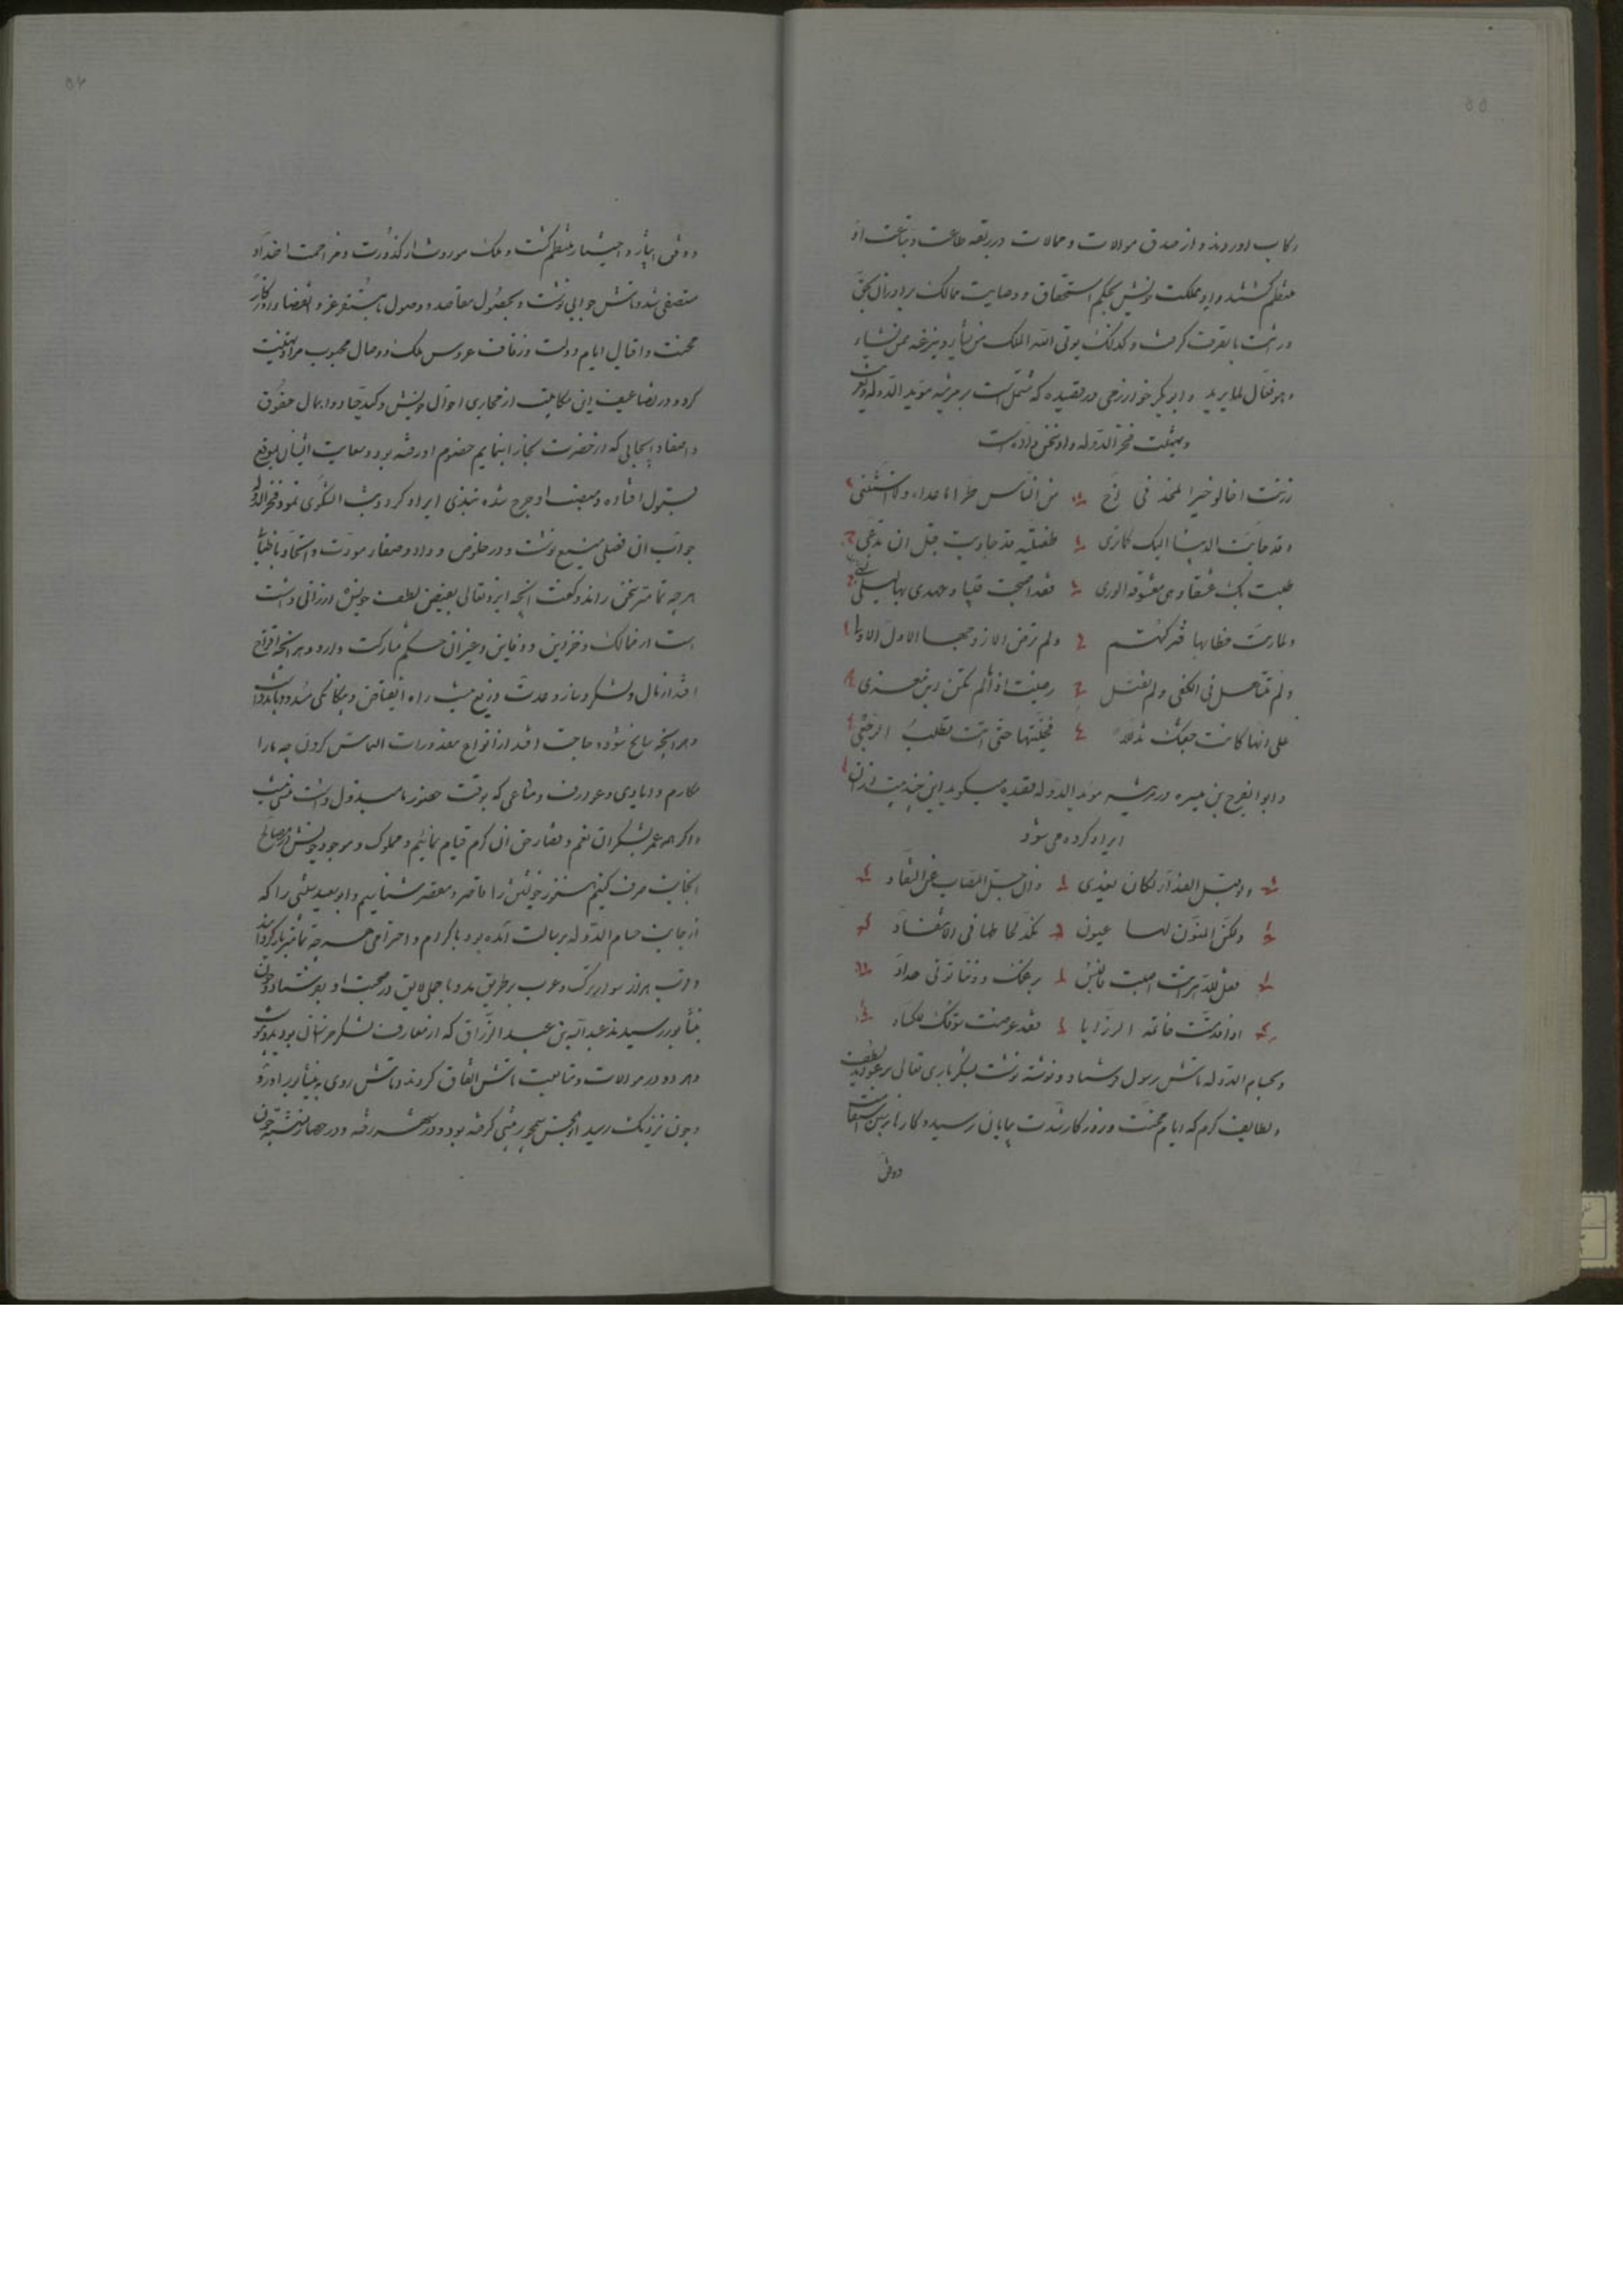 ۵۵
رکاب اوردند و از صدق موالات و ممالات در ربقه طاعت و تباعت او
منتظم کشتند و او مملکت خویش بحکم استحقاق و وصایت ممالک برادران بحق
وراثت با تصرف کرفت و کذلک یوتی الله الملک من یشاء و ینزعه ممن یشاء
و هو فعال لما یرید و ابو بکر خوارزمی در قصیده که مشتمل است بر مرثیه موید الدوله و تعزیت
و تهنیت فخر الدوله داد سخن داده است
رزئت اخا لو خیر المجد فی اخ من الناس طرا ما عداه و لا استثنی
و قد جاءت الدنیا الیک کما تری طفیلیة قد جاوبت قبل ان تدعی
صبت بک عشقا و هی معشوقة الوری فقد اصبحت قیسا و عهدی بها لیلی
و لما رات خطابها ترکتهم و لم ترض الا زوجها الاول الاولی
و لم تتساهل فی الکفی و لم تقل رضیت اذا لم تکن ابل معزی
علی انها کانت جفتک تدللا فخلیتها حتی اتت تطلب الرجعی
و ابو الفرج بن میسره در مرثیه موید الدوله قصیده میکوید این چند بیت از ان
ایراد کرده می شود
و لو قبل الفداء لکان یفدی و ان جل المصاب عن التفاد
و لکن المنون لها عیون تکد لحاظها فی الانتقاد
فقل للدهر انت اصبت فالبس برغمک دوننا ثوبی حداد
اذا قدمت خاتمة الرزایا فقد عرضت سوقک للکساد
و بحسام الدوله تاش رسول فرستاد و نوشته نوشت بشکر باری تعالی بر عواید لطف
و لطایف کرم که ایام محنت و روز کار شدت بپایان رسید و کارها بر سنن استقامت
و وفق
۵۴
و وفق ایثار و اختیار منتظم کشت و ملک موروث از کدورت و مزاحمت اضداد
مستصفی شد و تاش جوابی نوشت و بحصول مقاصد و وصول بمستقر عز و انقضاء روز کار
محنت و اقبال ایام دولت و زفاف عروس ملک و وصال محبوب مراد تهنیت
کرد و در تضاعیف این مکاتبت از مجاری احوال خویش و کید حساد و اهمال حقوق
و اصغاء ایجابی که از حضرت بخارا بنمایم خصوم او رفته بود و سعایت ایشان بموقع
قبول افتاده و بسبب او جرح شده نبذی ایراد کرد و بث الشکوی نمود فخر الدوله
جواب ان فصلی مشبع نوشت و در خلوص وداد و صفاء مودت و اتحاد باطناب
هر چه تمامتر سخن راند و کفت انچه ایزد تعالی بفیض لطف خویش ارزانی داشت
است از ممالک و خزاین و دفاین و غیر ان حکم مشارکت دارد و هر انچه اقتراح
افتد از مال و لشکر و ساز و عدت دریغ نیست راه انقباض و بیکانکی مسدود باید داشت
و هر انچه سانح شود و حاجت افتد از انواع مقدورات التماس کردن چه ما را
مکارم و ایادی و عوارف و مساعی که بوقت حضور ما مبذول داشت منسی نیست
و اکر همه عمر بشکر ان نعم و قضاء حق ان کرم قیام نمائیم و مملوک و موجود خویش در مصالح
انجانب صرف کنیم هنوز خویشتن را قاصر و مقصر شناسیم و ابو سعید شبیبی را که
از جانب حسام الدوله برسالت آمده بود باکرام و احترامی هر چه تمامتر باز کردانید
و مرتب هزار سوار ترک و عرب بر طریق مدد با حملی لایق در صحبت او بفرستاد و چون
بنیسابور رسیدند عبد الله بن عبد الرزاق که از معارف لشکر خراسان بود بدو پیوست
و هر دو در موالات و متابعت تاش اتفاق کردند و تاش روی به نیسابور اورد
و چون نزدیک رسید ابو الحسن سیمجور پیشی کرفته بود و در شهر رفته و در حصار نشسته چون